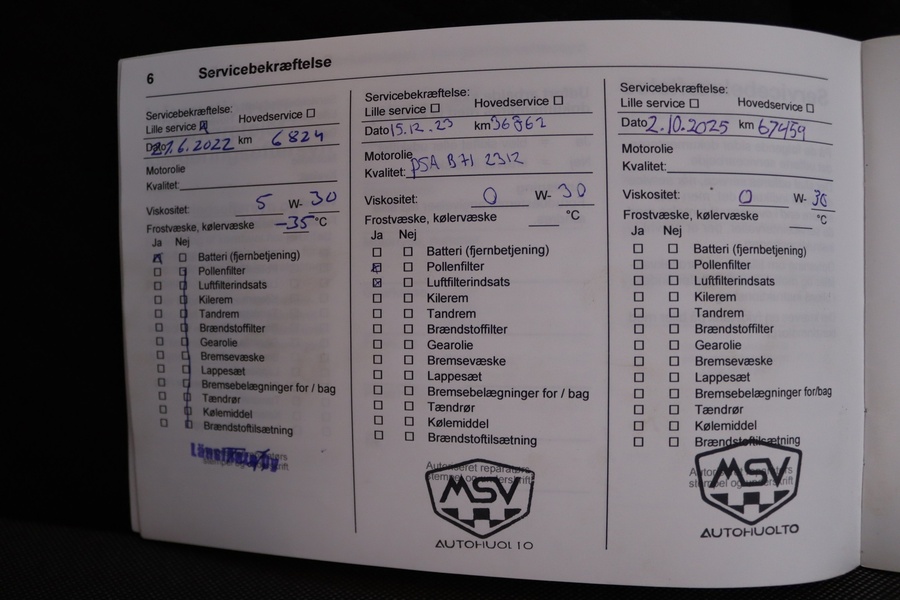 6 Servicebekræftelse
Servicebekræftelse:
Lille service ☒ Hovedservice ☐
Dato 27.6.2022 km 6824
Motorolie
Kvalitet:
Viskositet: 5 W- 30
Frostvæske, kølervæske -35 °C
Ja Nej
Batteri (fjernbetjening)
Pollenfilter
Luftfilterindsats
Kilerem
Tandrem
Brændstoffilter
Gearolie
Bremsevæske
Lappesæt
Bremsebelægninger for / bag
Tændrør
Kølemiddel
Brændstoftilsætning
Servicebekræftelse:
Lille service ☐ Hovedservice ☐
Dato 15.12.23 km 36862
Motorolie
Kvalitet: PSA B71 2312
Viskositet: 0 W- 30
Frostvæske, kølervæske °C
Ja Nej
Batteri (fjernbetjening)
Pollenfilter
Luftfilterindsats
Kilerem
Tandrem
Brændstoffilter
Gearolie
Bremsevæske
Lappesæt
Bremsebelægninger for / bag
Tændrør
Kølemiddel
Brændstoftilsætning
Autoriseret reparatørs
stempel og underskrift
MSV
AUTOHUOLTO
Servicebekræftelse:
Lille service ☐ Hovedservice ☐
Dato 2.10.2025 km 67459
Motorolie
Kvalitet:
Viskositet: 0 W- 30
Frostvæske, kølervæske °C
Ja Nej
Batteri (fjernbetjening)
Pollenfilter
Luftfilterindsats
Kilerem
Tandrem
Brændstoffilter
Gearolie
Bremsevæske
Lappesæt
Bremsebelægninger for/bag
Tændrør
Kølemiddel
Brændstoftilsætning
Autoriseret reparatørs
stempel og underskrift
MSV
AUTOHUOLTO